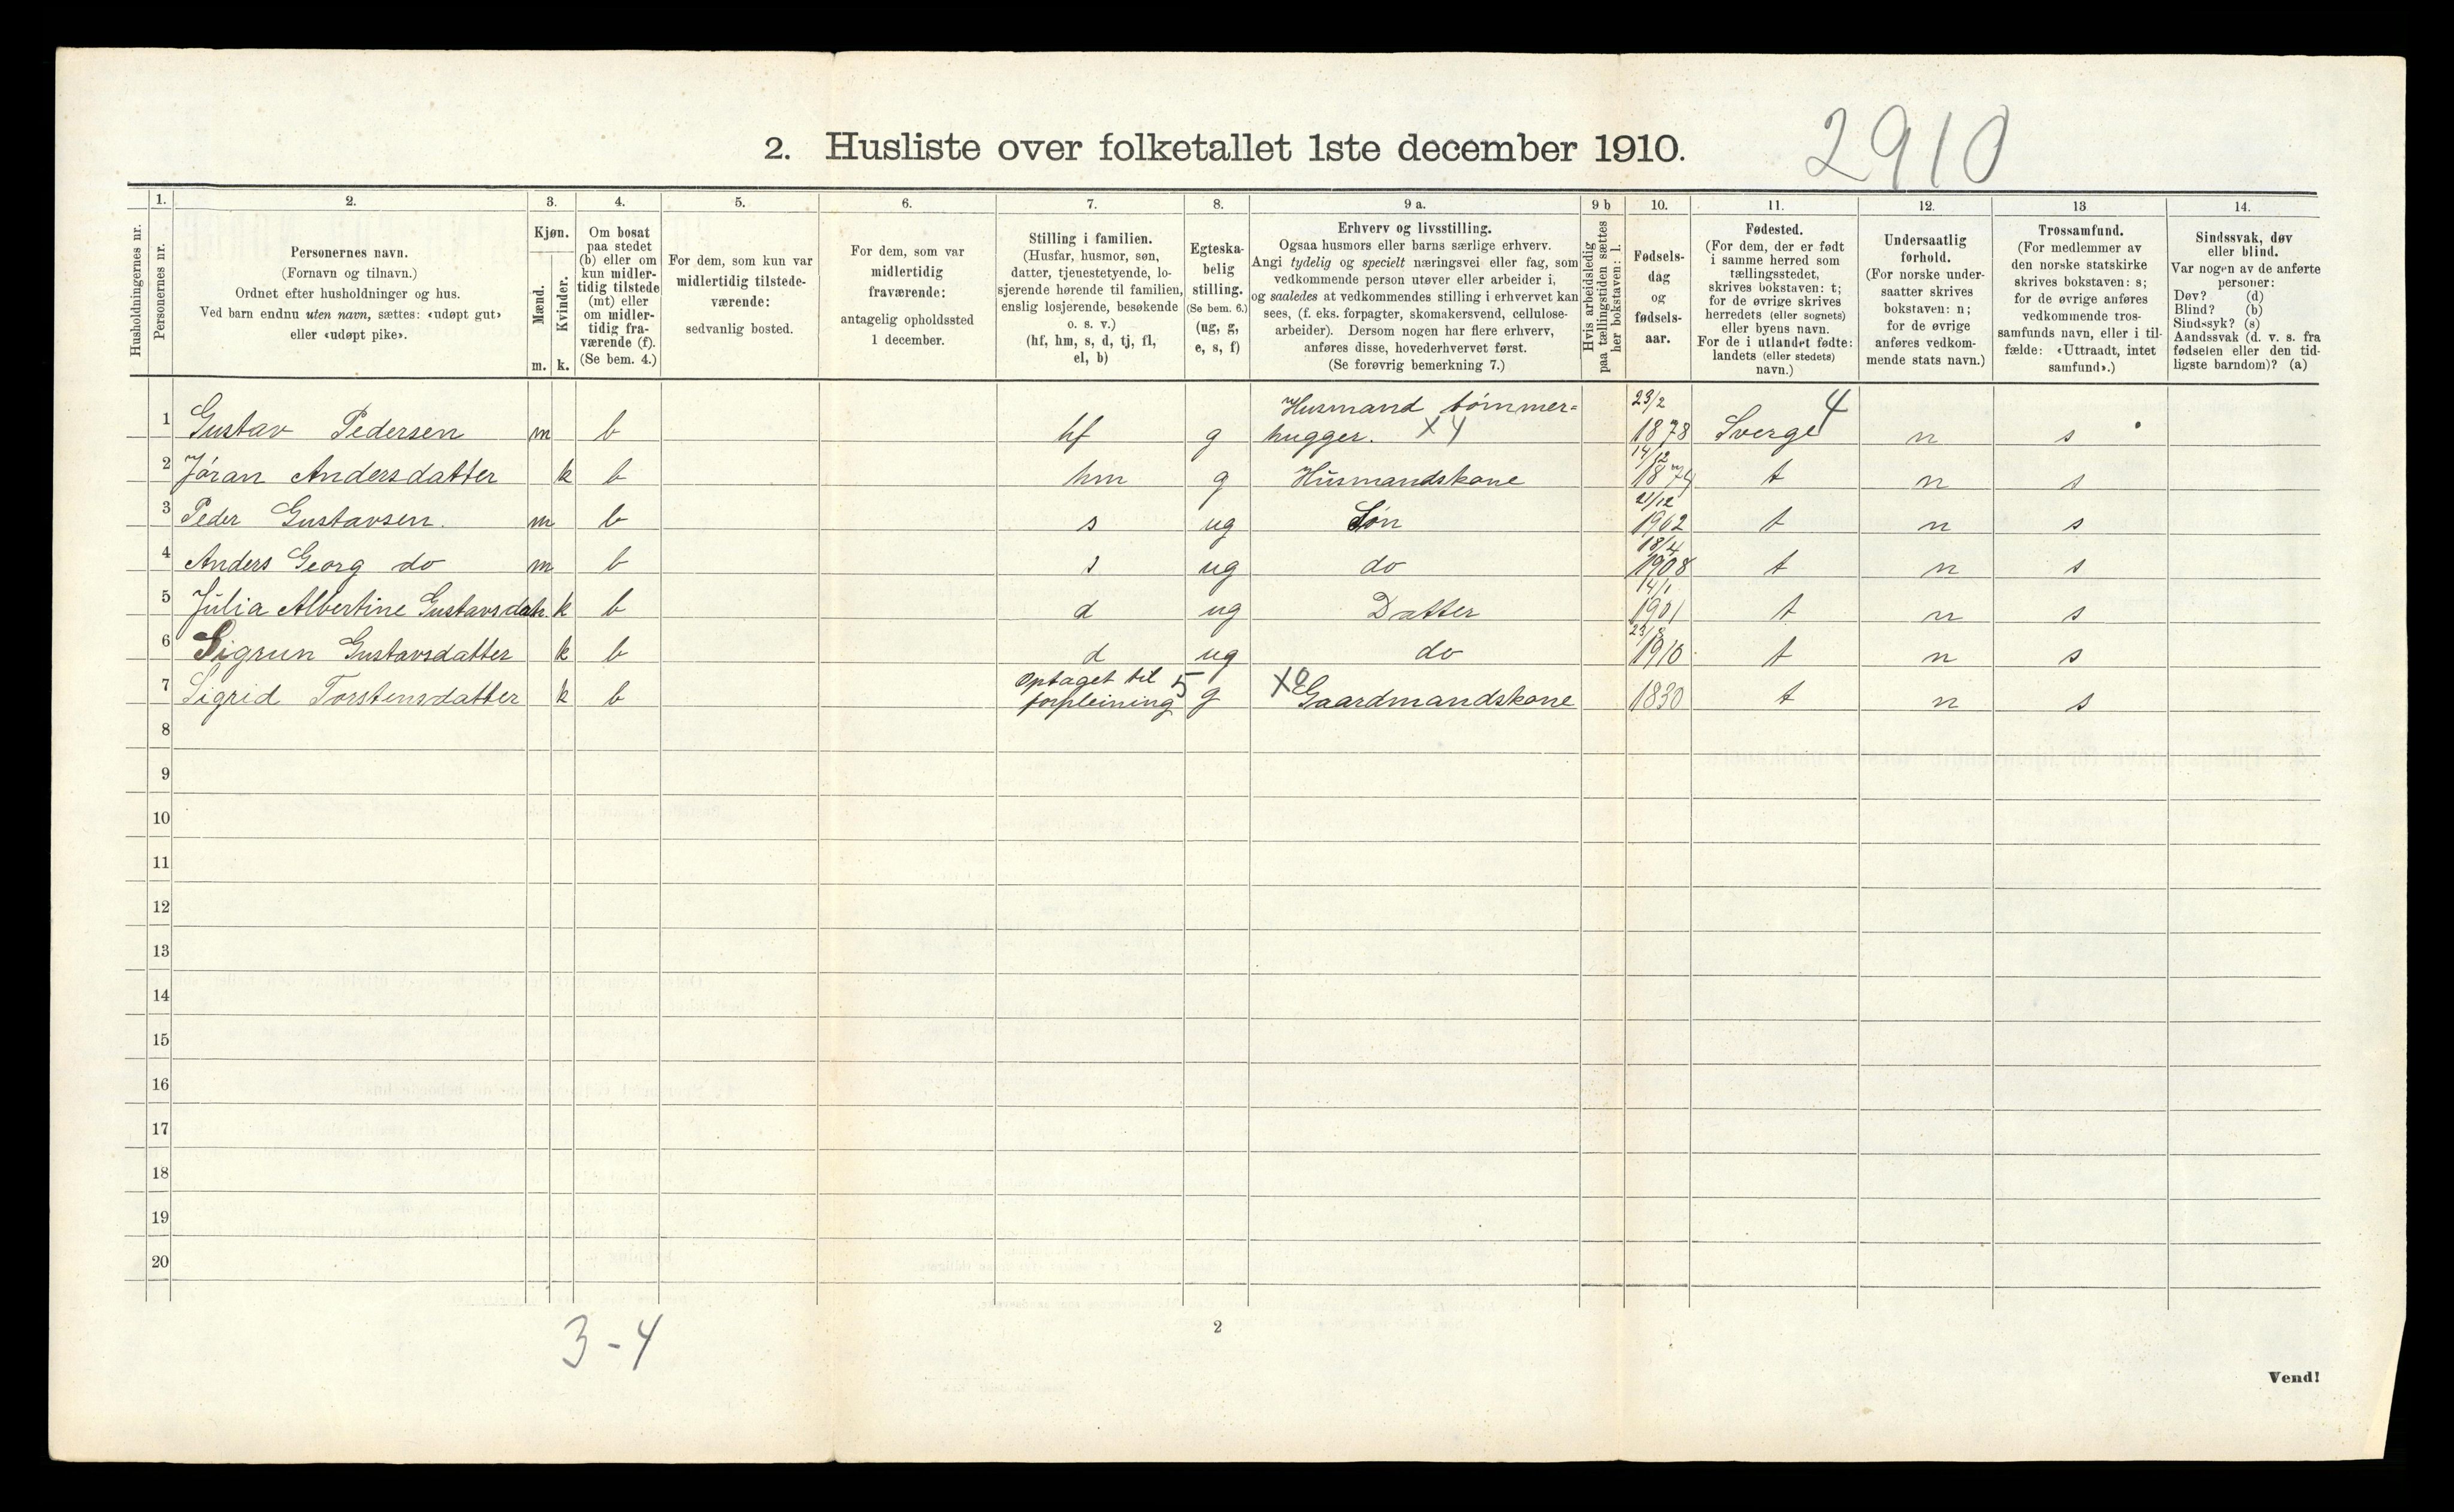 2. Husliste over folketallet 1ste december 1910. 2910
Husholdningernes nr.
1. Personernes nr.
2. Personernes navn. (Fornavn og tilnavn.) Ordnet efter husholdninger og hus. Ved barn endnu uten navn, sættes: «udøpt gut» eller «udøpt pike».
3. Kjøn. Mænd. m. Kvinder. k.
4. Om bosat paa stedet (b) eller om kun midlertidig tilstede (mt) eller om midlertidig fraværende (f). (Se bem. 4.)
5. For dem, som kun var midlertidig tilstedeværende: sedvanlig bosted.
6. For dem, som var midlertidig fraværende: antagelig opholdssted 1 december.
7. Stilling i familien. (Husfar, husmor, søn, datter, tjenestetyende, losjerende hørende til familien, enslig losjerende, besøkende o. s. v.) (hf, hm, s, d, tj, fl, el, b)
8. Egteskabelig stilling. (Se bem. 6.) (ug, g, e, s, f)
9 a. Erhverv og livsstilling. Ogsaa husmors eller barns særlige erhverv. Angi tydelig og specielt næringsvei eller fag, som vedkommende person utøver eller arbeider i, og saaledes at vedkommendes stilling i erhvervet kan sees, (f. eks. forpagter, skomakersvend, cellulosearbeider). Dersom nogen har flere erhverv, anføres disse, hovederhvervet først. (Se forøvrig bemerkning 7.)
9 b Hvis arbeidsledig paa tællingstiden sættes her bokstaven: l.
10. Fødselsdag og fødselsaar.
11. Fødested. (For dem, der er født i samme herred som tællingsstedet, skrives bokstaven: t; for de øvrige skrives herredets (eller sognets) eller byens navn. For de i utlandet fødte: landets (eller stedets) navn.)
12. Undersaatlig forhold. (For norske undersaatter skrives bokstaven: n; for de øvrige anføres vedkommende stats navn.)
13 Trossamfund. (For medlemmer av den norske statskirke skrives bokstaven: s; for de øvrige anføres vedkommende trossamfunds navn, eller i tilfælde: «Uttraadt, intet samfund».)
14. Sindssvak, døv eller blind. Var nogen av de anførte personer: Døv? (d) Blind? (b) Sindssyk? (s) Aandssvak (d. v. s. fra fødselen eller den tidligste barndom)? (a)
1 Gustav Pedersen m b hf g Husmand tømmerhugger. X4 23/2 1878 Sverge 4 n s
2 Jøran Andersdatter k b hm g Husmandskone 14/12 1874 t n s
3 Peder Gustavsen. m b s ug Søn 21/12 1902 t n s
4 Anders Georg do m b s ug do 18/4 1908 t n s
5 Julia Albertine Gustavsdatr. k b d ug Datter 14/1 1901 t n s
6 Sigrun Gustavsdatter k b d ug do 23/8 1910 t n s
7 Sigrid Torstensdatter k b Optaget til forpleining 5 g X0 Gaardmandskone 1830 t n s
8
9
10
11
12
13
14
15
16
17
18
19
20
3-4
2
Vend!